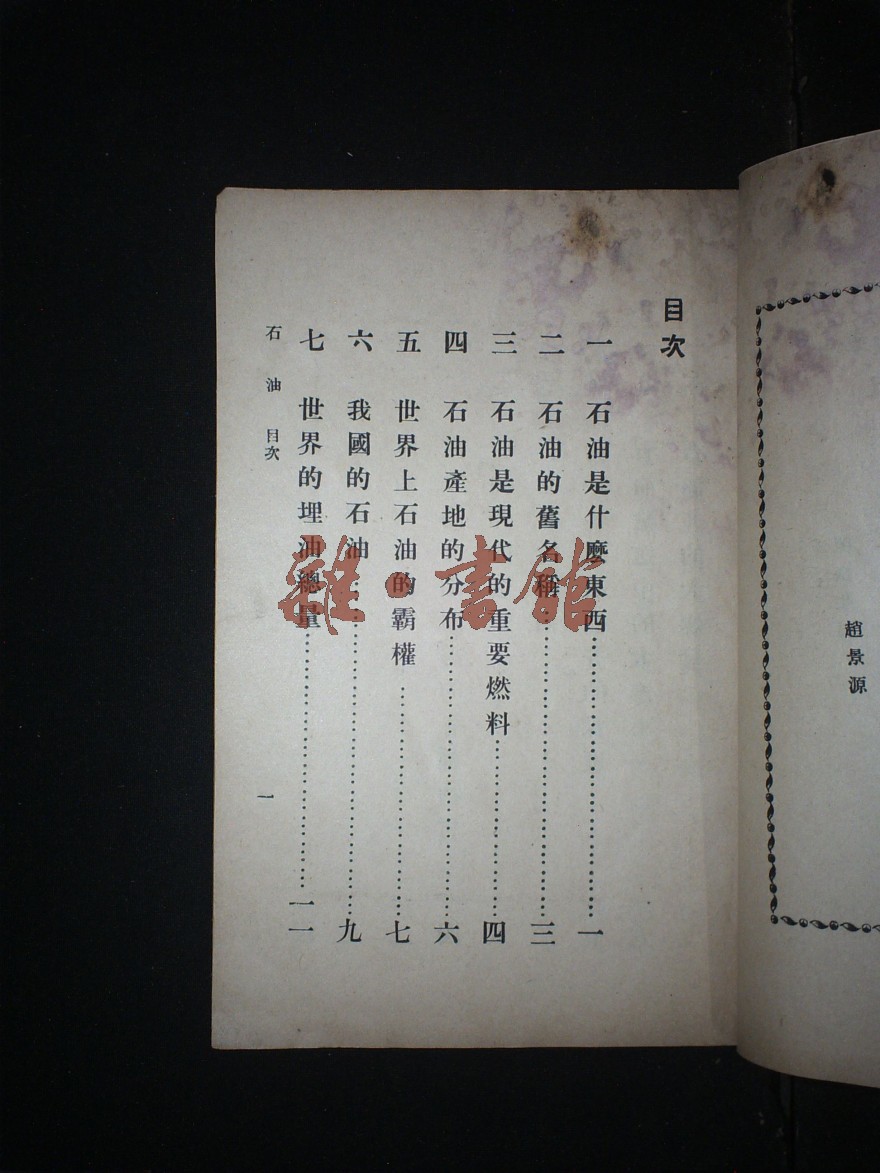 趙景源
目次
一　石油是什麼東西……一
二　石油的舊名稱……三
三　石油是現代的重要燃料……四
四　石油產地的分布……六
五　世界上石油的霸權……七
六　我國的石油……九
七　世界的埋油總量……一一
石油　目次
一
雜·書館